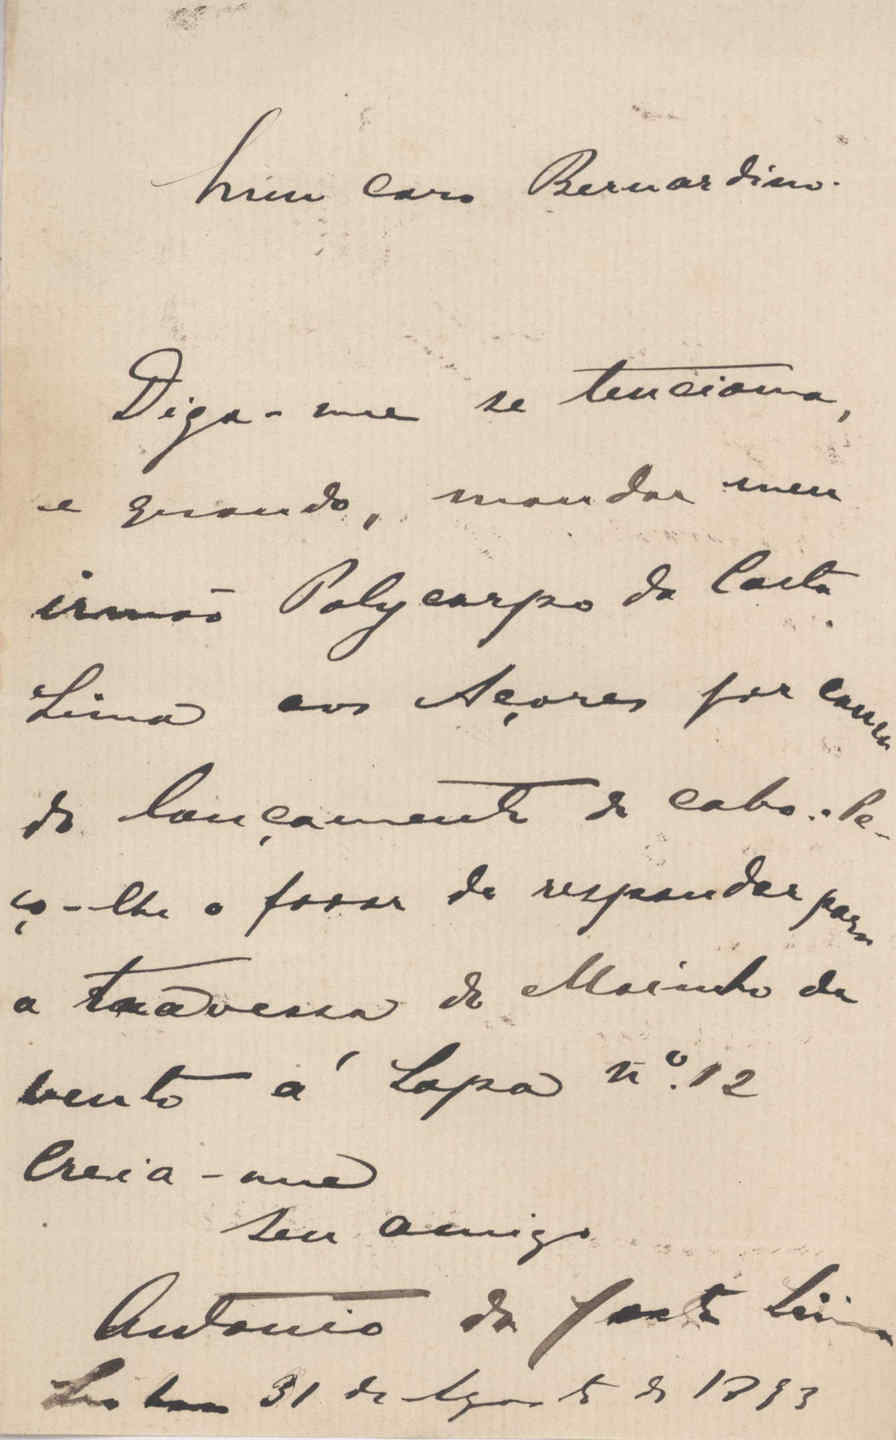 Meu caro Bernardino.
Diga-me se tenciona,
e quando, mandar meu
irmão Polycarpo da Costa
Lima aos Açores por causa
do lançamento do cabo. Pe-
ço-lhe o favor de responder para
a travessa do Moinho de
vento á Lapa nº. 12
Creia-me
seu amigo
Antonio da Costa Lima
Lisboa 31 de Agosto de 1893